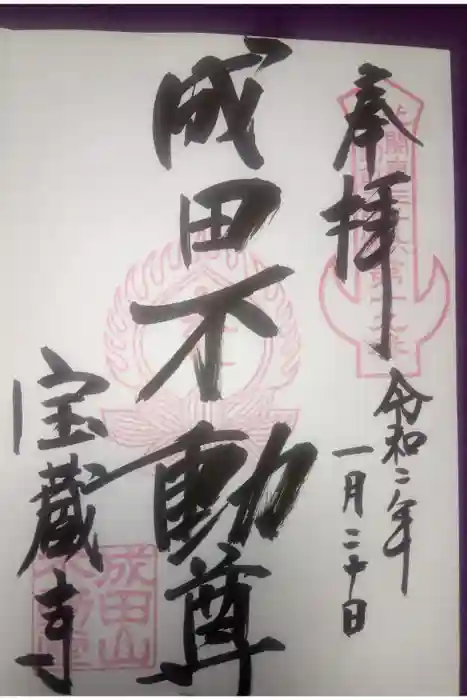 奉拝
令和二年
一月二十日
成田不動尊
宝蔵寺
成田山